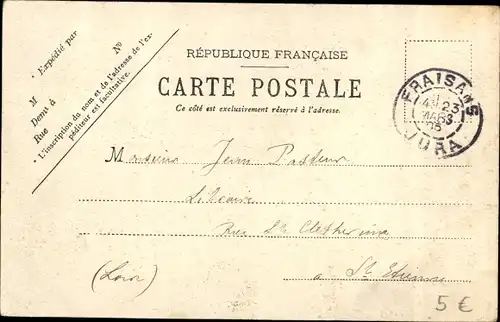 • Expédié par
M No
Demt à
Rue
• L'inscription du nom et de l'adresse de l'ex-
péditeur est facultative.
RÉPUBLIQUE FRANÇAISE
CARTE POSTALE
Ce côté est exclusivement réservé à l'adresse.
FRAISANS
23
MARS
JURA
Monsieur Jean Pasteur
Libraire
Rue Ste Catherine
à St Etienne
(Loire)
5 €